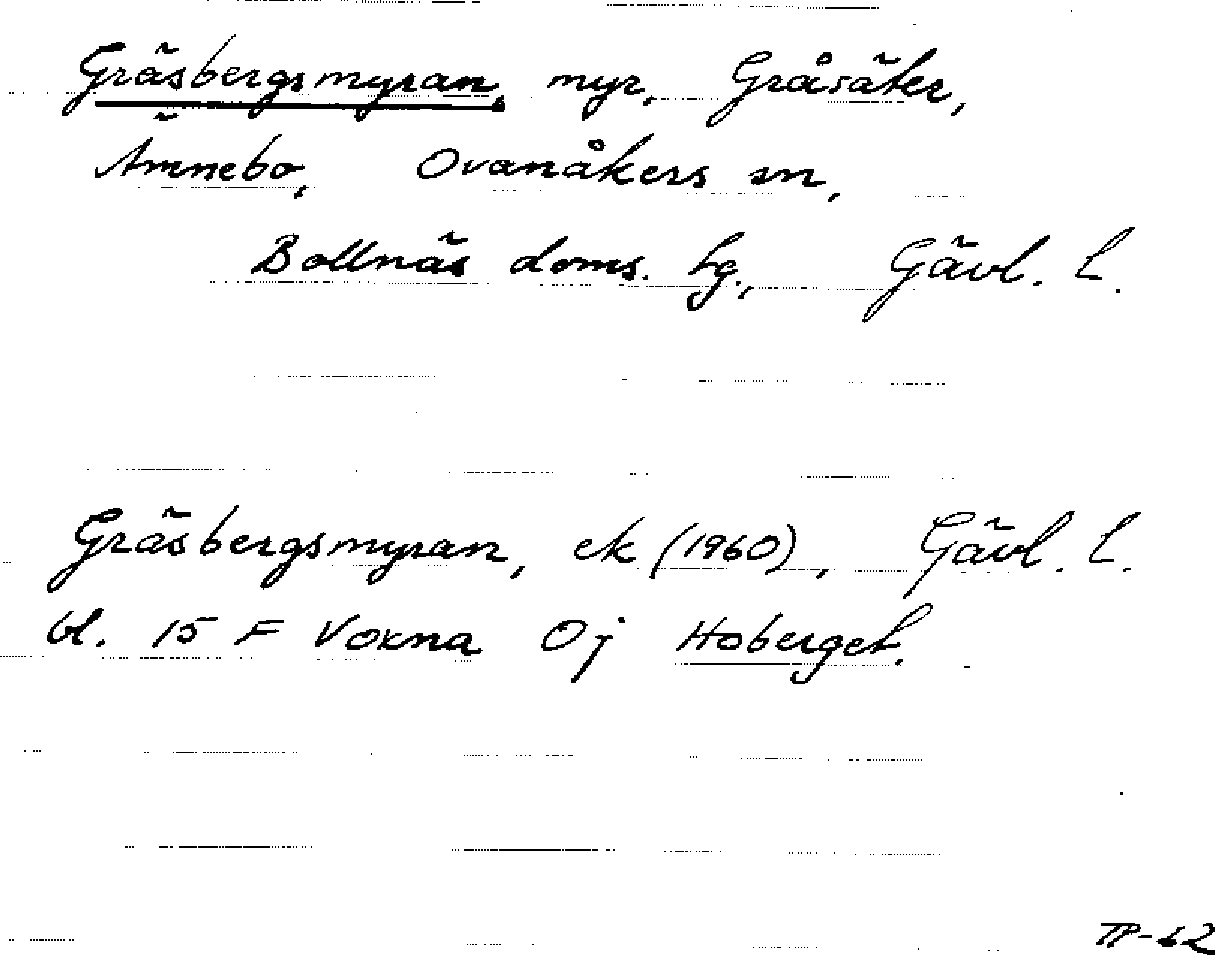 Gräsbergsmyran, myr, Gråsäter,
Ämnebo, Ovanåkers sn,
Bollnäs doms. hg., Gävl. l.
Gräsbergsmyran, ek (1960), Gävl. l.
bl. 15 F Voxna 0j Hoberget.
TP-62